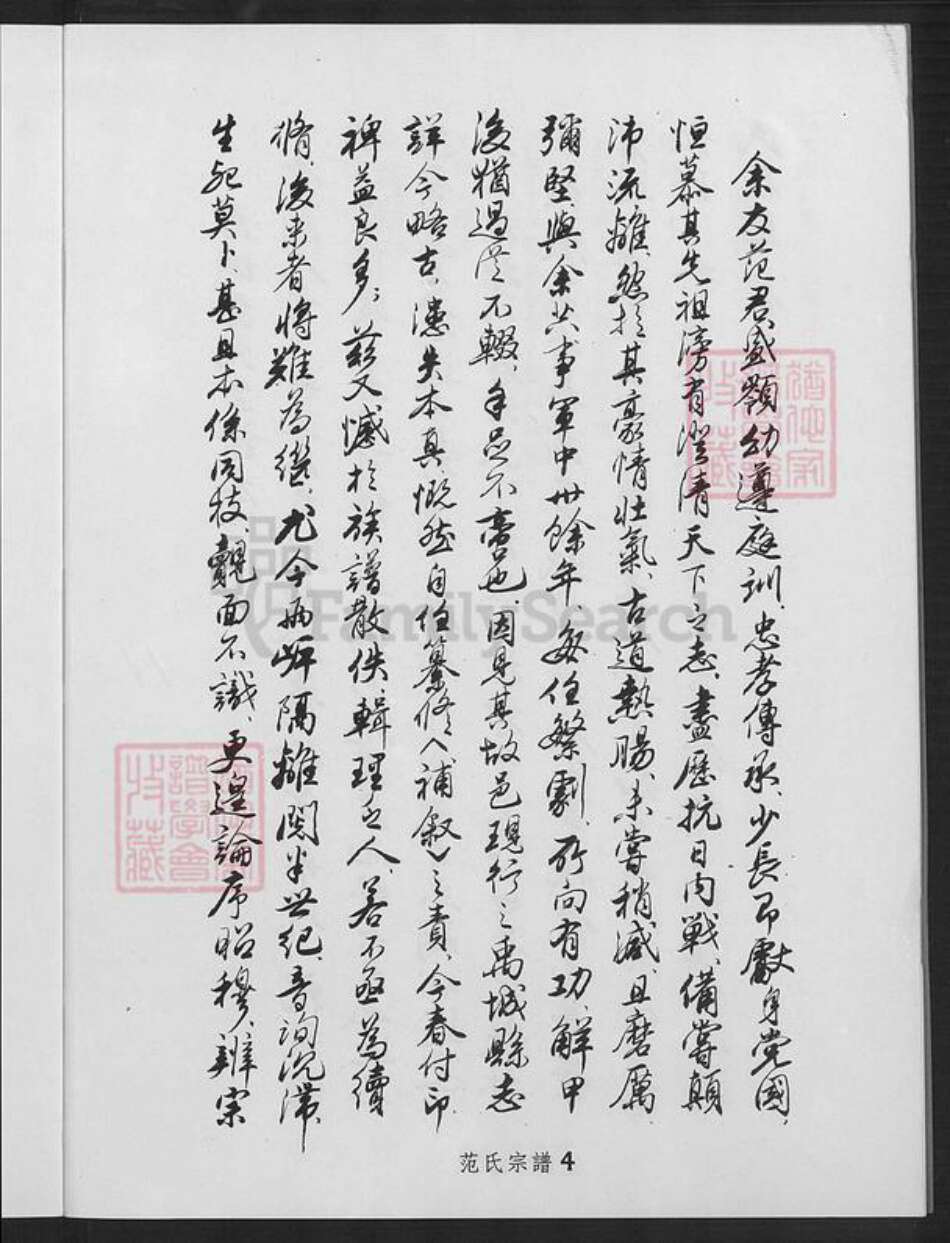 余友范君盛顎幼遵庭訓、忠孝傳承、少長即獻身党國、
恒慕其先祖滂有澄清天下之志、盡歷抗日內戰、備嘗顛
沛流離、然於其豪情壯氣、古道熱腸、未嘗稍減、且磨厲
彌堅、與余共事軍中卅餘年、每任繁劇、所向有功、解甲
後猶過從不輟、手足不啻也、因見其故邑現行之禹城縣志
詳今略古、漶失本真、慨然自任纂修(補敘)之責、今春付印、
裨益良多；茲又憾於族譜散佚、輯理乏人、若不亟為續
脩、後來者將難為繼、尤今兩岸隔離閱半世紀、音詢沉滯、
生死莫卜、甚且本係同枝、覿面不識、更遑論序昭穆、辨宗
范氏宗譜 4
猶他家
譜學會
收藏
猶他家
譜學會
收藏
FamilySearch